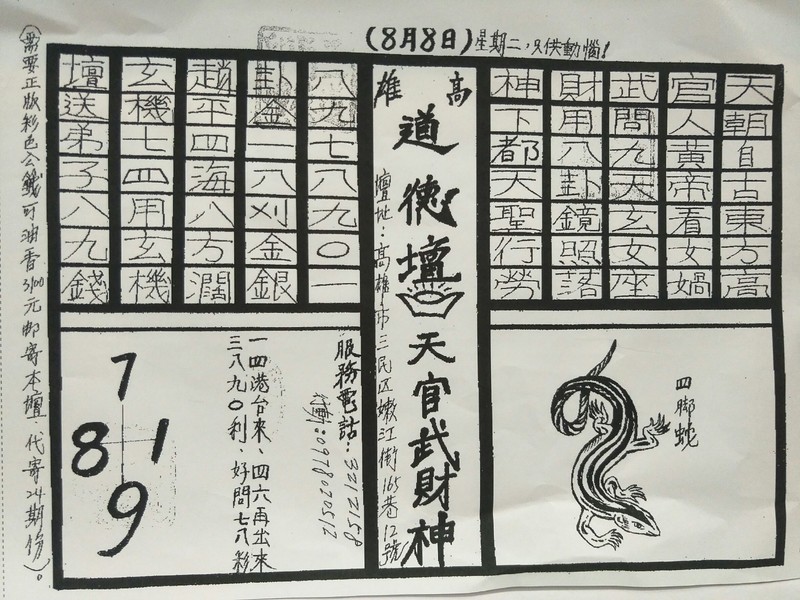 (8月8日)星期二,只供動惱!
天朝自古東方高
官人黃帝看女媧
武問九天玄女座
財用八卦鏡照落
神下都天聖行勞
高雄
道德壇
天官武財神
壇地:高雄市三民区嫩江街165巷12號
八九七八九〇一
卦金一八刈金銀
趙平四海八方濶
玄機七四用玄機
壇送弟子八九錢
四腳蛇
服務電話:3212158
行動:0978020512
一四港台來、四六再出來
三八九〇利、好問七八彩
7
8 1
9
(需要正版彩色公錢可油香3100元邮寄本壇、代寄24期份)。